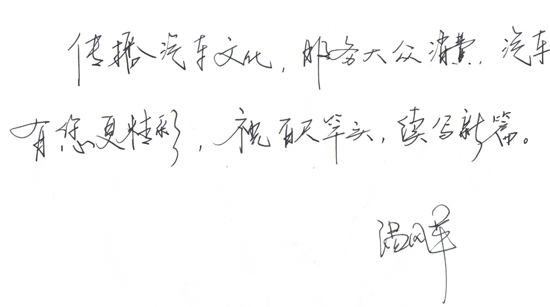 传播汽车文化,服务大众消费,汽车
有您更精彩,祝百尺竿头,续写新篇。